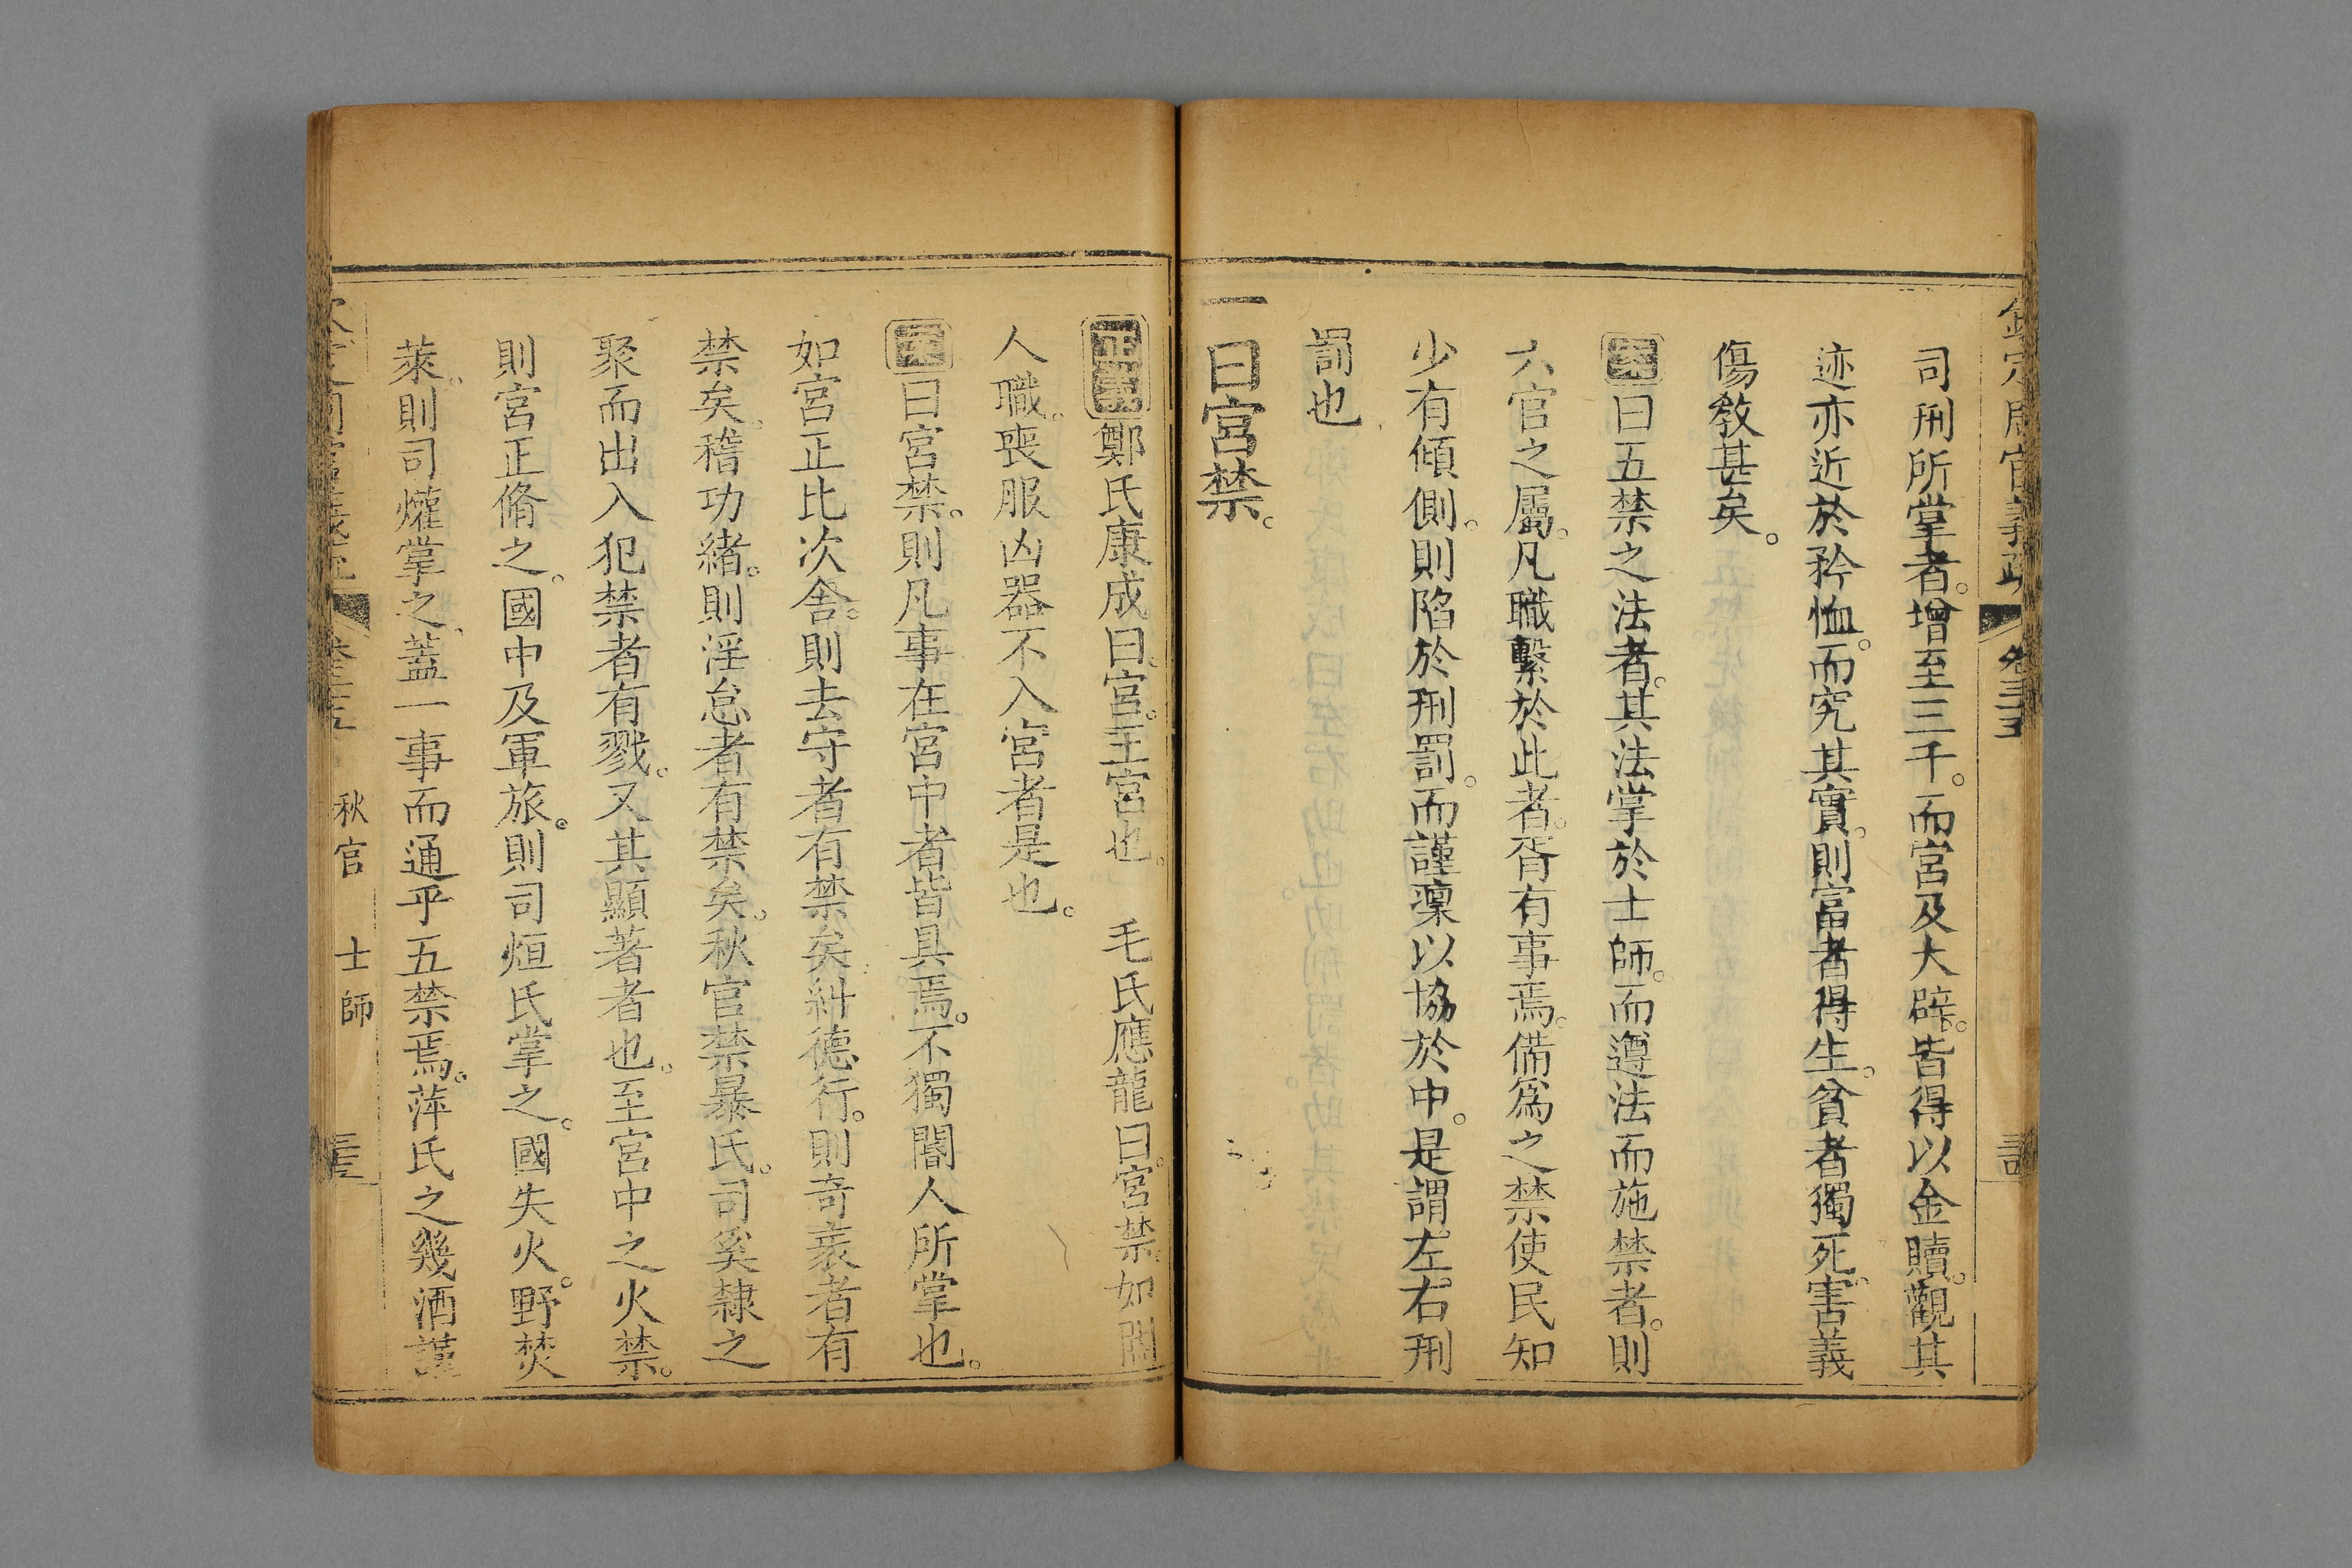 欽定周官義疏 卷三十五
司刑所掌者。增至三千。而宮及大辟。皆得以金贖。觀其
迹亦近於矜恤。而究其實。則富者得生。貧者獨死。害義
傷敎甚矣。
案曰五禁之法者。其法掌於士師。而遵法而施禁者。則
六官之屬。凡職繫於此者。胥有事焉。備爲之禁使民知
少有傾側。則陷於刑罰。而謹凜以協於中。是謂左右刑
罰也
一曰宮禁。
正義鄭氏康成曰。宮。王宮也。 毛氏應龍曰。宮禁。如閽
人職。喪服凶器不入宮者是也。
案曰宮禁。則凡事在宮中者皆具焉。不獨閽人所掌也。
如宮正比次舍。則去守者有禁矣。糾德行。則奇衺者有
禁矣。稽功緒。則淫怠者有禁矣。秋官禁暴氏。司奚隸之
聚而出入犯禁者有戮。又其顯著者也。至宮中之火禁。
則宮正脩之。國中及軍旅。則司烜氏掌之。國失火。野焚
萊。則司爟掌之。蓋一事而通乎五禁焉。萍氏之幾酒謹
秋官 士師